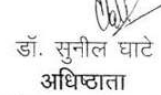 डॉ. सुनील घाटे
अधिष्ठाता